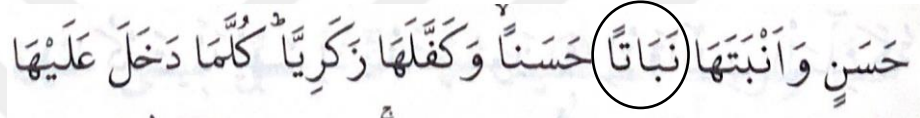 حَسَنٍ وَاَنْبَتَهَا نَبَاتًا حَسَنًاۙ وَكَفَّلَهَا زَكَرِيَّاۜ كُلَّمَا دَخَلَ عَلَيْهَا